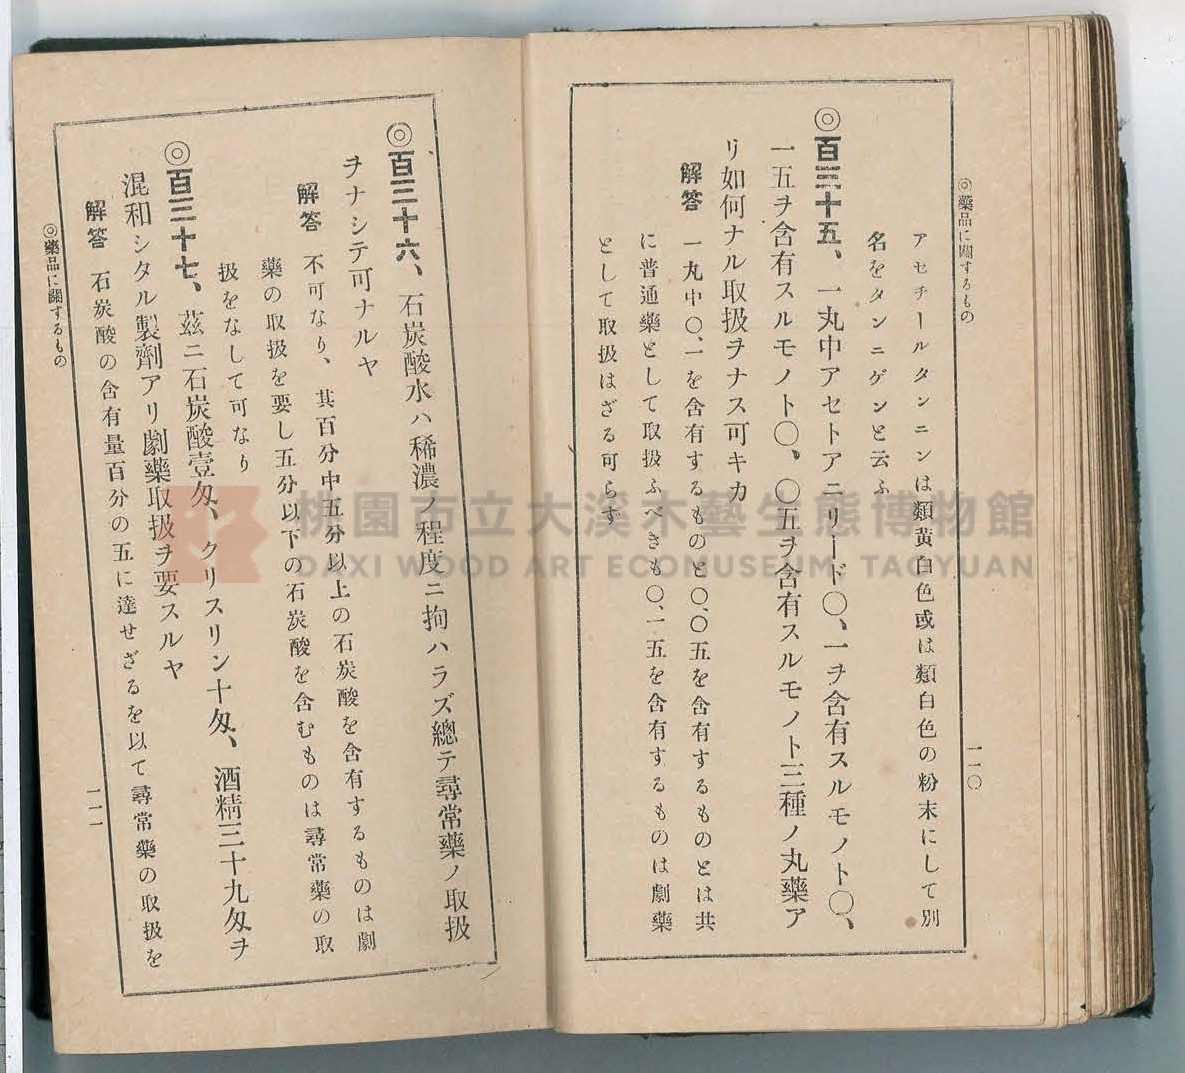 ◎藥品に關するもの
一一〇
アセチールタンニンは類黄白色或は類白色の粉末にして別
名をタンニゲンと云ふ
◎百三十五、一丸中アセトアニリード〇、一ヲ含有スルモノト〇、
一五ヲ含有スルモノト〇、〇五ヲ含有スルモノト三種ノ丸藥ア
リ如何ナル取扱ヲナス可キカ
解答 一丸中〇、一を含有するものと〇、〇五を含有するものとは共
に普通藥として取扱ふべきも〇、一五を含有するものは劇藥
として取扱はざる可らず
◎百三十六、石炭酸水ハ稀濃ノ程度ニ拘ハラズ總テ尋常藥ノ取扱
ヲナシテ可ナルヤ
解答 不可なり、其百分中五分以上の石炭酸を含有するものは劇
藥の取扱を要し五分以下の石炭酸を含むものは尋常藥の取
扱をなして可なり
◎百三十七、茲ニ石炭酸壹匁、クリスリン十匁、酒精三十九匁ヲ
混和シタル製劑アリ劇藥取扱ヲ要スルヤ
解答 石炭酸の含有量百分の五に達せざるを以て尋常藥の取扱を
◎藥品に關するもの
一一一
桃園市立大溪木藝生態博物館
DAXI WOOD ART ECOMUSEUM, TAOYUAN